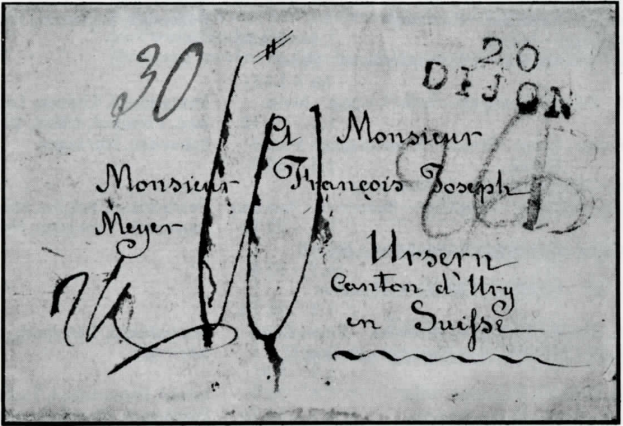 30
20
DIJON
A Monsieur
Monsieur François Joseph
Meyer
Ursern
Canton d'Ury
en Suisse